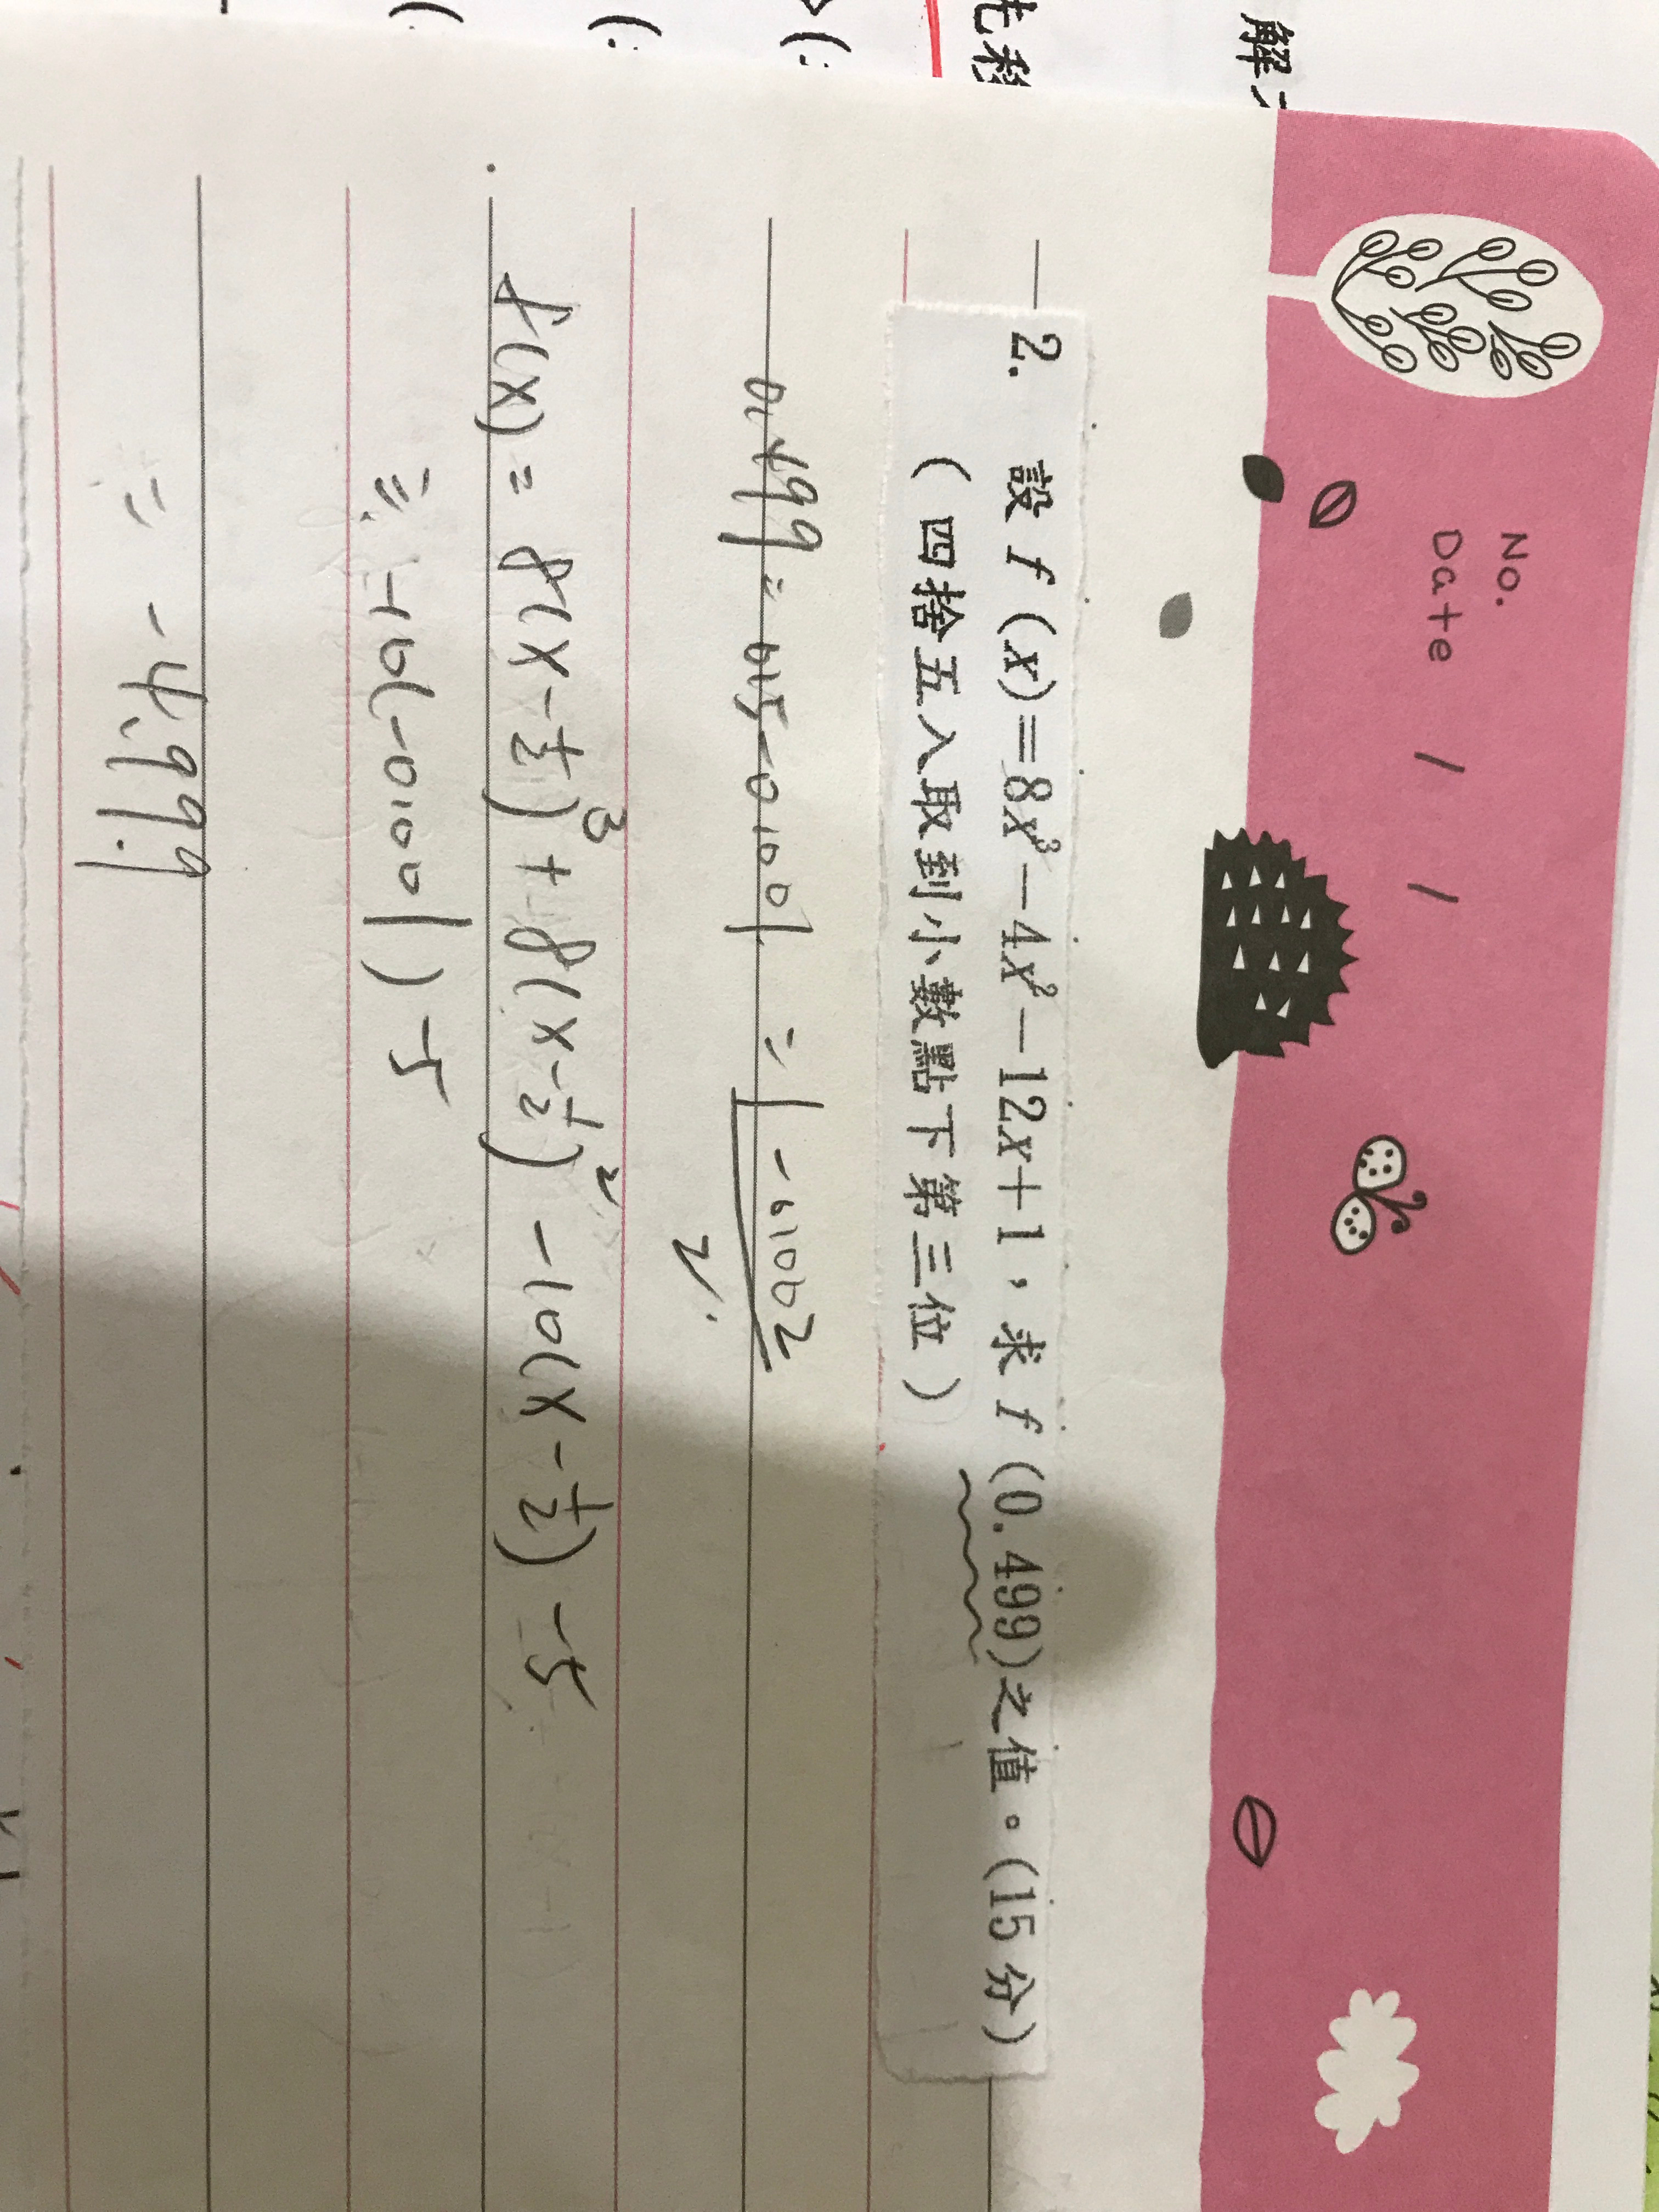 No.
Date / /
2. 設 f(x)=8x³-4x²-12x+1，求 f(0.499)之值。(15分)
(四捨五入取到小數點下第三位)
0.499 = 0.5-0.001 = 1-0.002
2
f(x) = 8(x-1/2)³+8(x-1/2)²-10(x-1/2)-5
≒ -10(-0.001)-5
= -4.99
解
先移